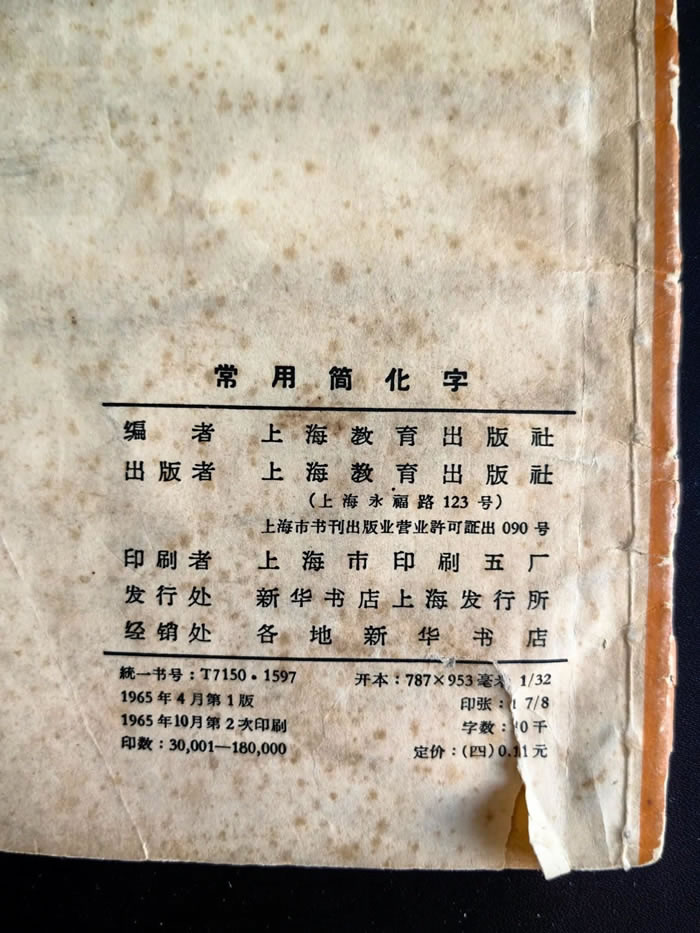 常用简化字
编者 上海教育出版社
出版者 上海教育出版社
(上海永福路 123 号)
上海市书刊出版业营业許可証出 090 号
印刷者 上海市印刷五厂
发行处 新华书店上海发行所
经销处 各地新华书店
統一书号：T7150·1597 开本：787×953 毫米 1/32
1965 年 4 月第 1 版 印张： 7/8
1965 年 10 月第 2 次印刷 字数： 0 千
印数：30,001—180,000 定价：(四) 0.11 元